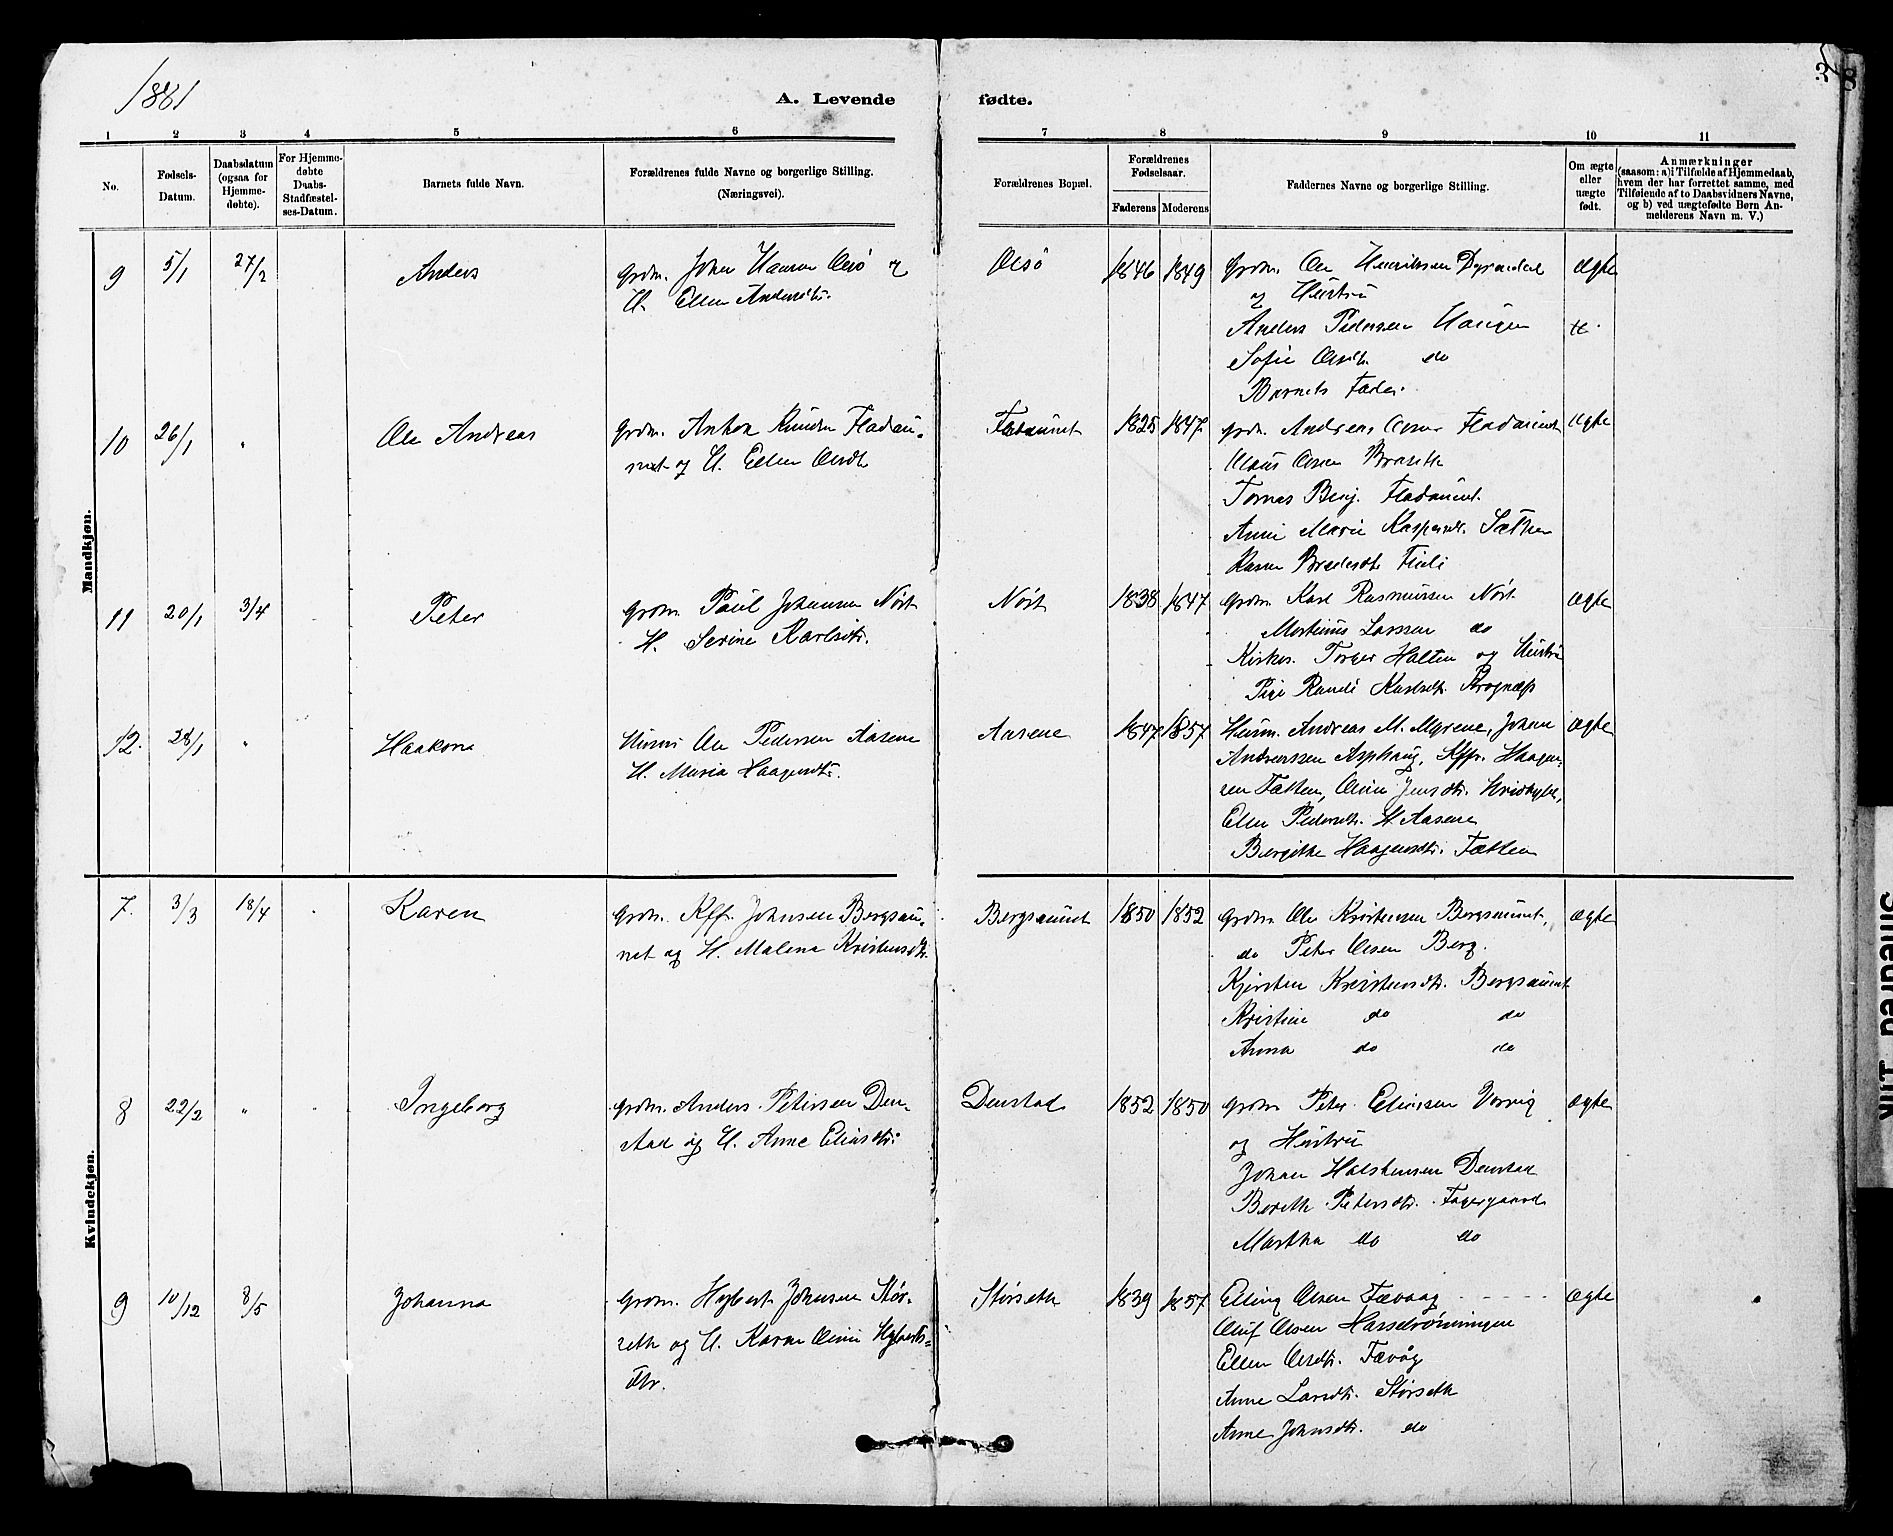 1881
A. Levende fødte.
3
8
1 2 3 4 5 6 7 8 9 10 11
No.
Fødsels-Datum.
Daabsdatum (ogsaa for Hjemme-døbte).
For Hjemme-døbte Daabs-Stadfæstel-ses-Datum.
Barnets fulde Navn.
Forældrenes fulde Navne og borgerlige Stilling.
(Næringsvei).
Forældrenes Bopæl.
Forældrenes Fødselsaar.
Faderens Moderens
Faddernes Navne og borgerlige Stilling.
Om ægte eller uægte født.
Anmærkninger
(saasom: a) i Tilfælde af Hjemmedaab,
hvem der har forrettet samme, med
Tilføiende af to Daabsvidners Navne,
og b) ved uægtefødte Børn An-
melderens Navn m. V.)
Mandkjøn.
9 5/1 27/2 Anders
Grdm. Johan Hansen Olsø og
H. Ellen Andersdtr.
Olsø 1846 1849
Grdm. Ole Henriksen Dyrendal
og Hustru
Anders Pedersen Haugen
Sofie Olsdtr. do
Barnets Fader.
Ægte
10 26/1 " Ole Andreas
Grdm. Anton Knudsen Fladau-
net og H. Ellen Olsdtr
Fladaunet 1825 1847
Grdm. Andreas Olsen Fladaunet
Claus Olsen
Tomas Benj. Fladaunet.
Anne Marie Kaspersdt. Sæther
Ægte
11 20/1 3/4 Peter
Grdm. Paul Johansen Nøst
H. Serine Karlsdtr.
Nøst 1838 1847
Grdm. Karl Rasmussen Nøst
Martinus Larssen do
Kirkes. Torger Halten og Hustru
Pige Randi Karlsdtr.
Ægte
12. 28/1 " Haakon
Ole Pedersen Aasene
H. Maria Haagensdtr.
Aasene 1847 1857
Andreas M. Myrene, Johan
Andreassen Asphaug, Kffr. Haagen-
sen Fætten, Oline Jensdtr.
Ellen Pedersdtr. H. Aasene
Bergitte Haagensdtr. Fætten
Ægte
Kvindekjøn.
7. 3/3 18/4 Karen
Grdm. Kffr. Johnsen Bergsau-
net og H. Malena Kristensdtr.
Bergsaunet 1850 1852
Grdm Ole Kristensen Bergsaunet,
do Peter Olsen Berg.
Kjersten Kristensdtr. Bergsaunet
Kristine do do
Anna do do
Ægte
8 22/2 " Ingeborg
Grdm. Anders Petersen Den-
stad og H. Anne Eliasdtr.
Denstad 1852 1850
Grdm Peter Eliassen Vorvig
og Hustru
Johan Halstensen Denstad
Berethe Petersdtr. Fagergaard
Martha do do
Ægte
9 10/12 8/5 Johanna
Grdm. Hybert Johnsen Stør-
seth og H. Karen Oline Hyberts-
dtr.
Størseth 1839 1857
Elling Olsen Fævaag
Oluf Olsen Hasselrønningen
Ellen Olsdtr. Fævåg
Anne Larsdtr. Størseth
Anne Johnsdtr. do
Ægte